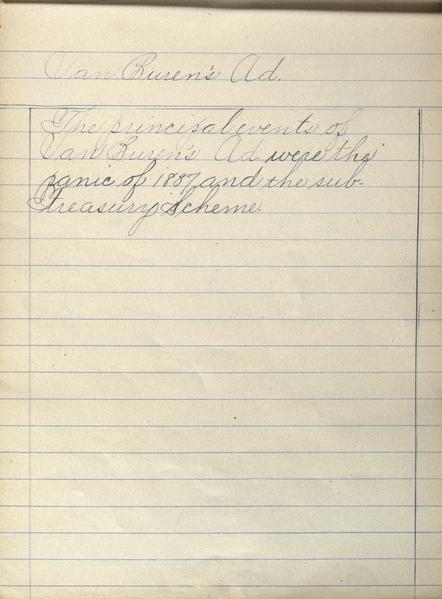 Van Buren's Ad.
The principal events of
Van Buren's Ad were the
panic of 1837 and the sub-
Treasury scheme.